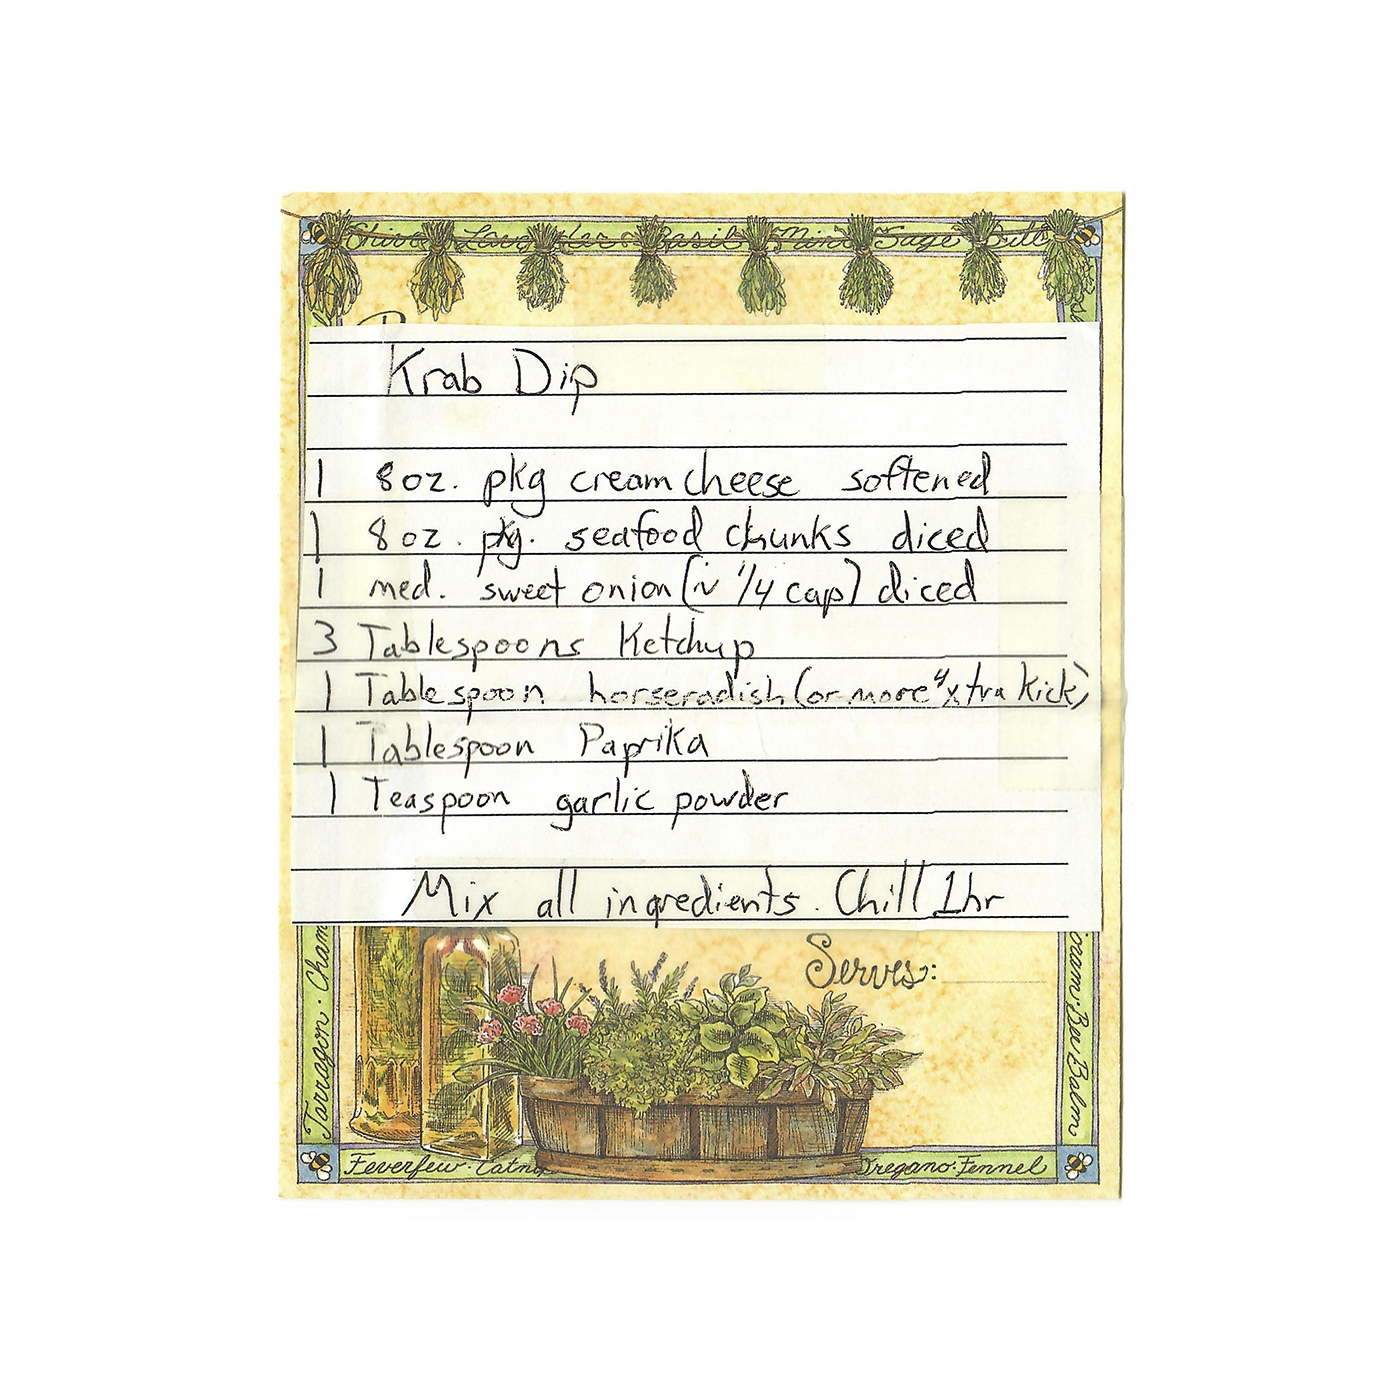 Chive Lavender Basil Mint Sage Dill
Krab Dip
1 8oz. pkg cream cheese softened
1 8oz. pkg. seafood chunks diced
1 med. sweet onion (~ 1/4 cap) diced
3 Tablespoons Ketchup
1 Tablespoon horseradish (or more 4 xtra kick)
1 Tablespoon Paprika
1 Teaspoon garlic powder
Mix all ingredients. Chill 1hr
Serves:
Tarragon · Cham
joram · Bee Balm
Feverfew · Catnip
Oregano · Fennel